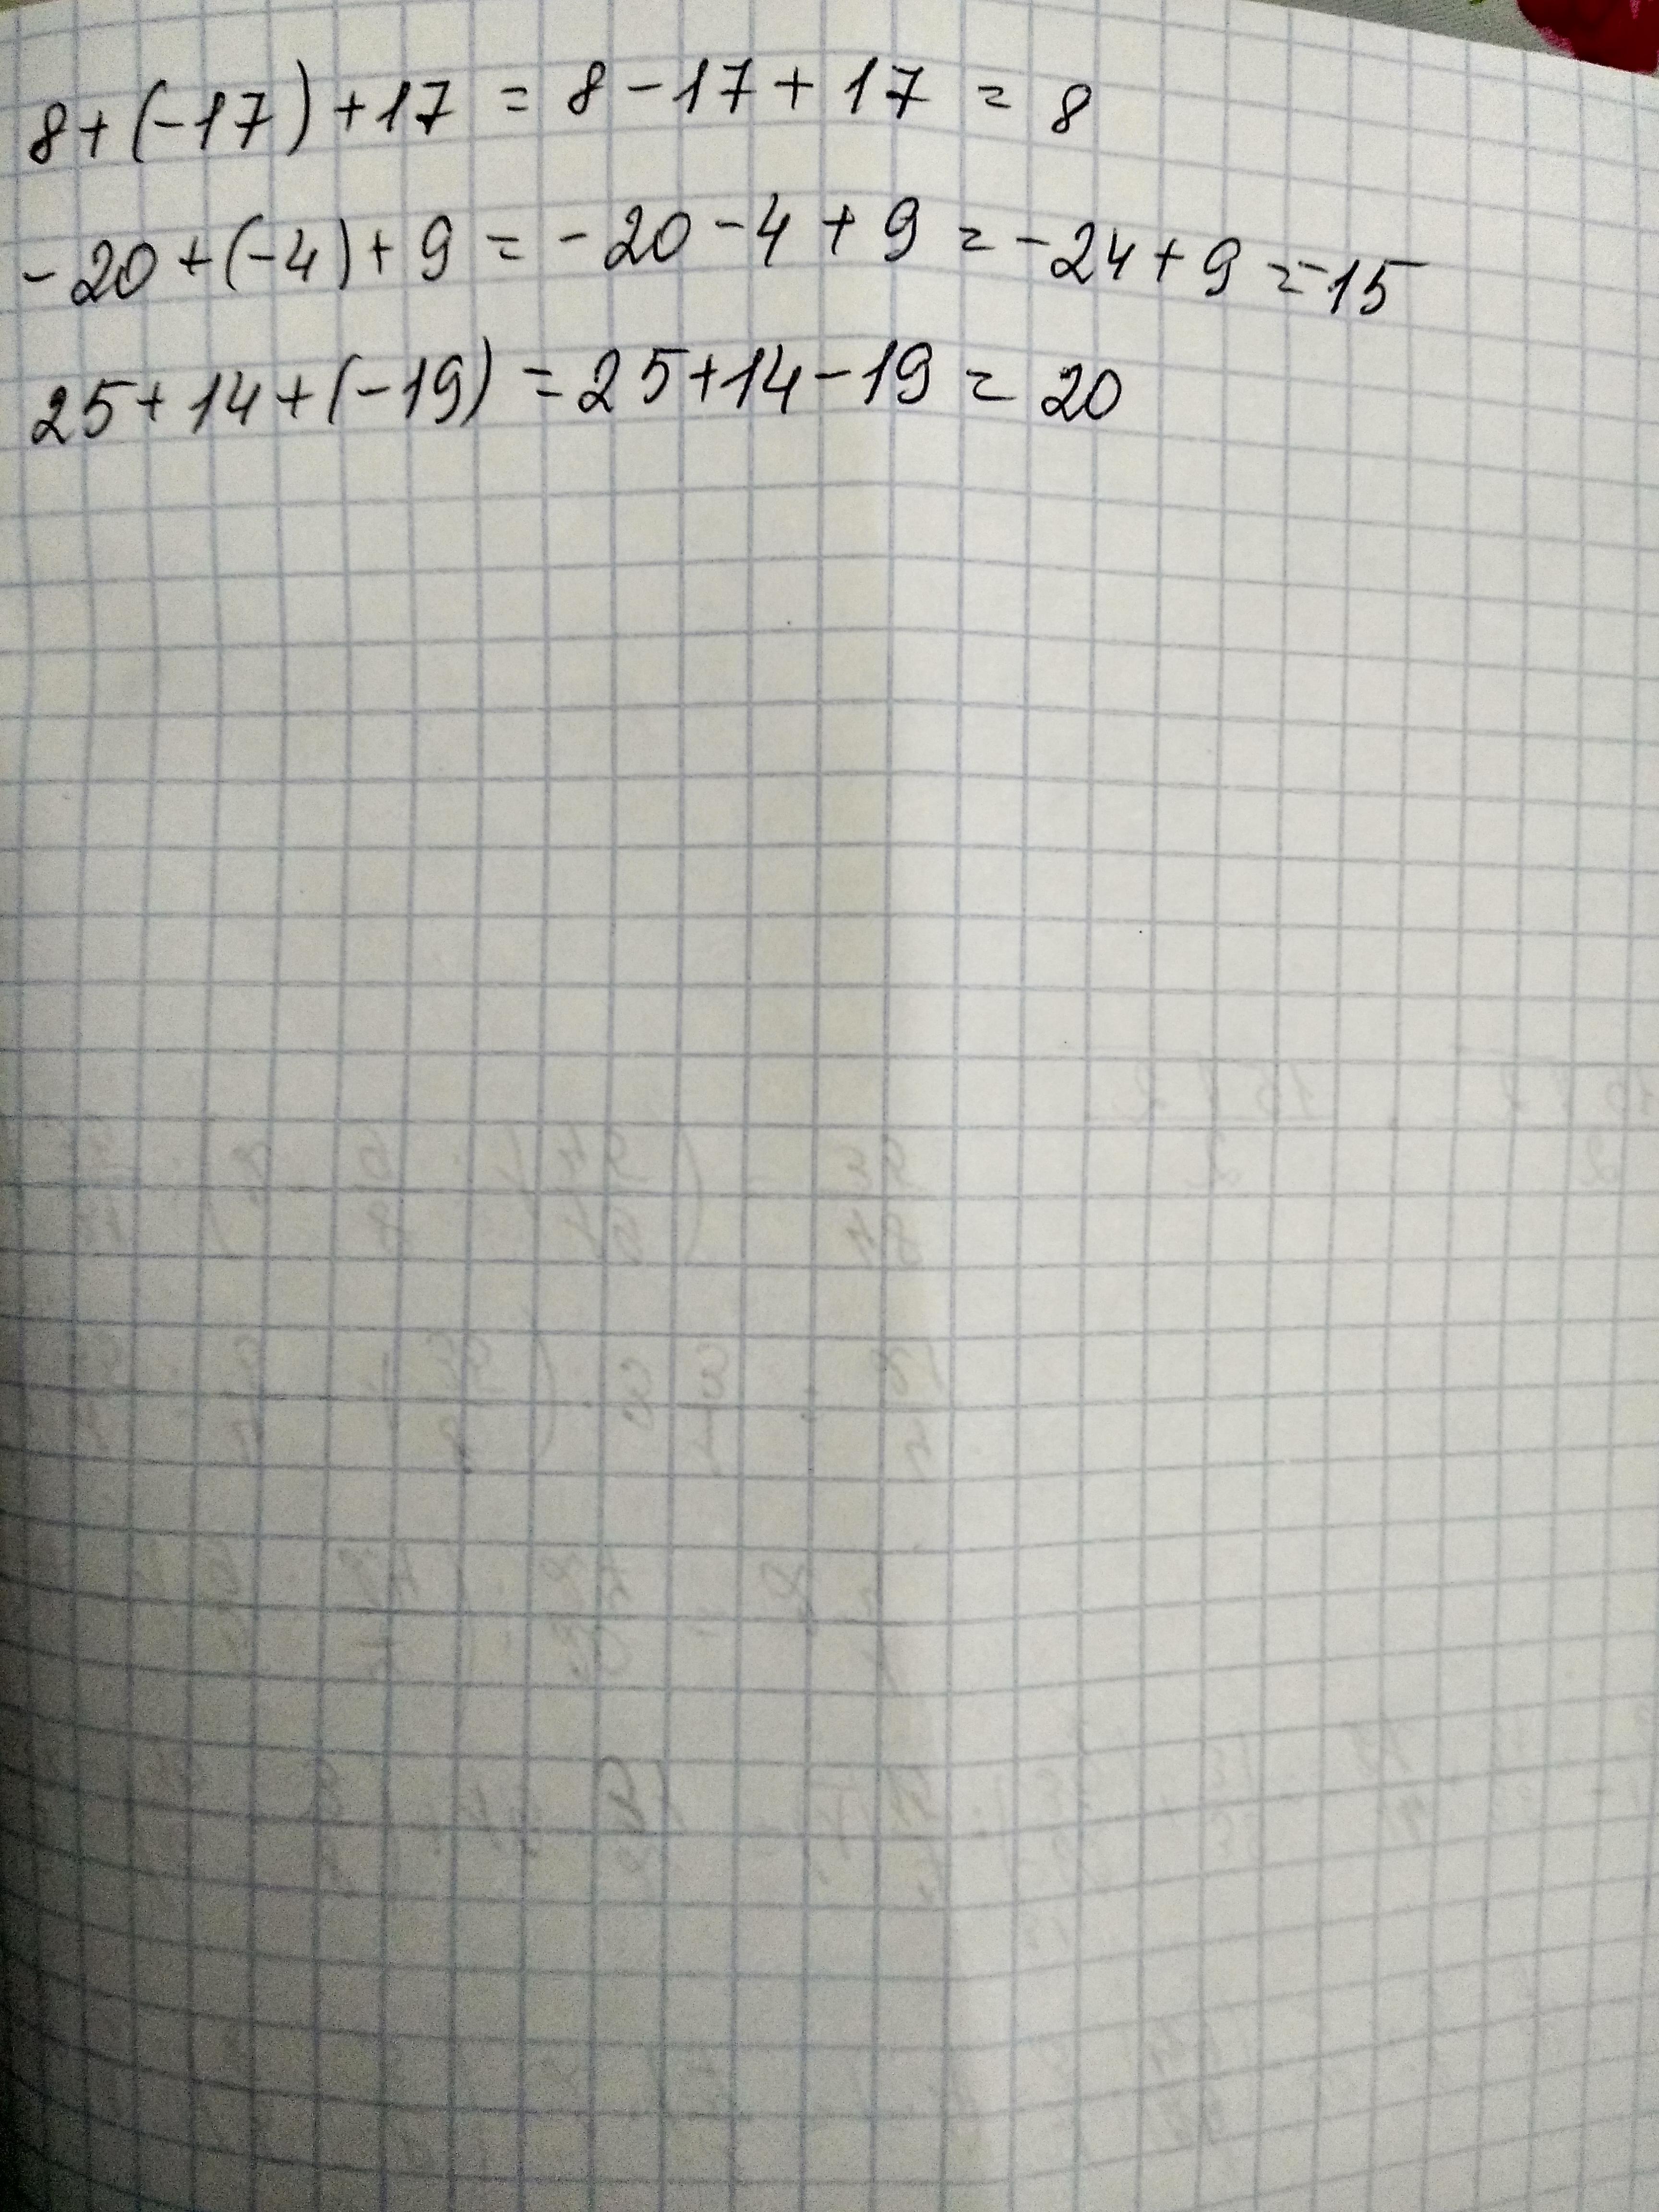 8+(-17)+17 = 8-17+17 = 8
-20+(-4)+9 = -20-4+9 = -24+9 = -15
25+14+(-19) = 25+14-19 = 20